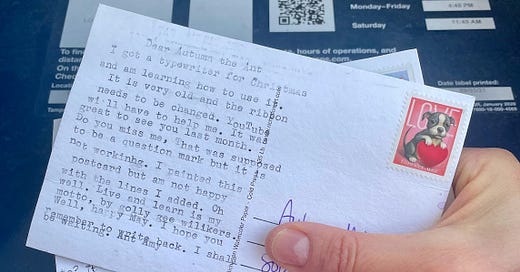 Monday–Friday
4:45 PM
Saturday
11:45 AM
To
, hours of operations, and
Date label printed:
Dear Autumn the Ant
I got a typewriter for Christmas
and am learning how to use it.
It is very old and the ribbon
needs to be changed. YouTube
will have to help me. It was
great to see you last month.
Do you miss me, That was supposed
to be a question mark but it is
not I painted this
postcard but am not happy
with the lines I added. Oh
well. Live and learn is my
motto, by golly gee wilikers.
Well, happy May. I hope you
remember to write back. I shall
be waiting. Ant Amy
LOVE